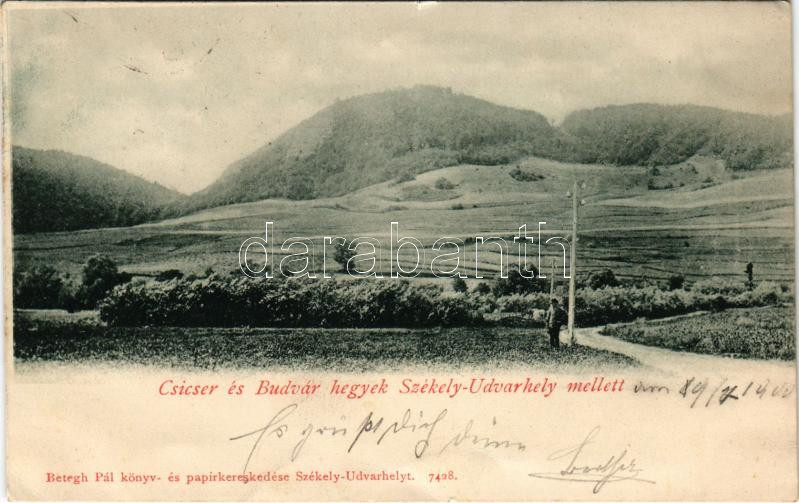 darabanth
Csicser és Budvár hegyek Székely-Udvarhely mellett am 19/7 1900
Es grüßt Dich Deine
Betegh Pál könyv- és papirkereskedése Székely-Udvarhelyt. 7428.